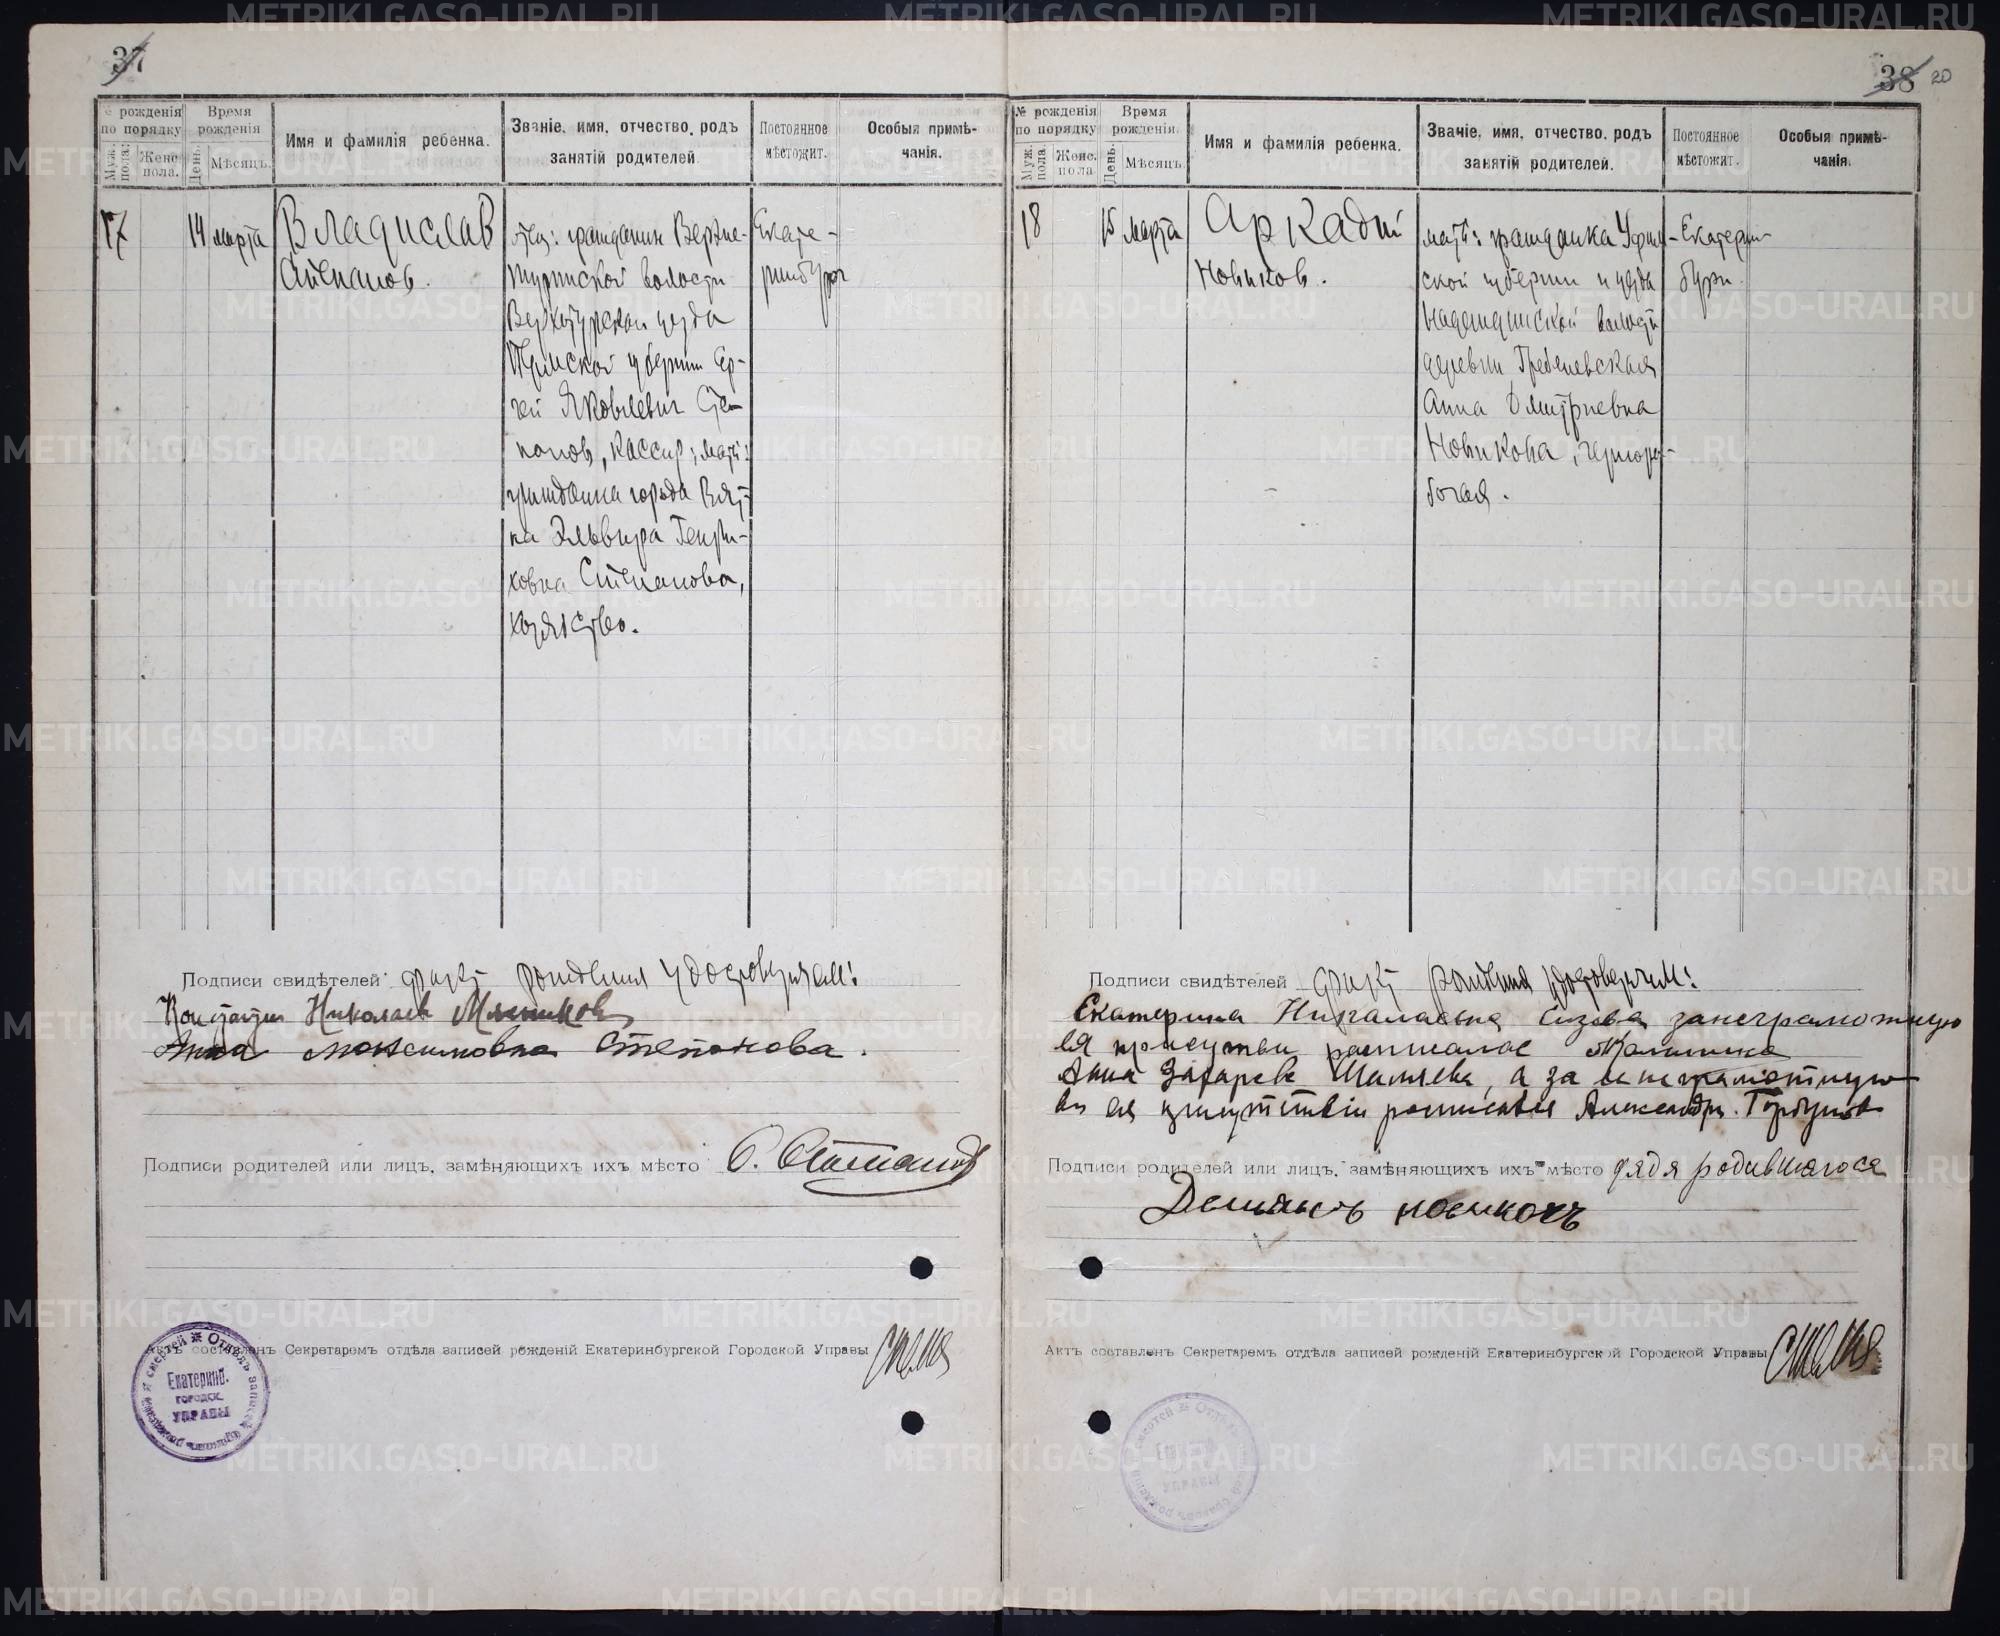 37
№ рожденія по порядку
Муж. пола.
Женс. пола.
Время рожденія
День.
Мѣсяцъ.
Имя и фамилія ребенка.
Званіе, имя, отчество, родъ занятій родителей.
Постоянное мѣстожит.
Особыя примѣчанія.
17
14 марта
Владислав
Степанов.
отец: гражданин Верхне-
туринской волости
Верхотурскаго уезда
Пермской губернии Сер-
гей Яковлевич Сте-
панов, кассир; мать:
гражданка города Вят-
ка Эльвира Генри-
ховна Степанова,
хозяйство.
Екате-
ринбург
Подписи свидѣтелей факт рождения удостоверяем:
Константин Николаев Мясников
Анна Максимовна Степанова.
Подписи родителей или лицъ, замѣняющихъ ихъ мѣсто С. Степанов
Актъ составленъ Секретаремъ отдѣла записей рожденій Екатеринбургской Городской Управы
Отдѣлъ записей браковъ, рожденій и смертей
Екатеринб.
ГОРОДСК.
УПРАВЫ
38 20
№ рожденія по порядку
Муж. пола.
Женс. пола
Время рожденія.
День.
Мѣсяцъ
Имя и фамилія ребенка.
Званіе, имя, отчество, родъ занятій родителей.
Постоянное мѣстожит.
Особыя примѣчанія.
18
15 марта
Аркадий
Новиков.
мать: гражданка Уфим-
ской губернии и уезда
Надеждинской волости
деревни Гребеневская
Анна Дмитриевна
Новикова, чернора-
бочая.
Екатерин-
бург.
Подписи свидѣтелей факт рождения удостоверяем:
Екатерина Николаевна Сизова за неграмотную
ея присутствии расписалас
Анна Захарев а за неграмотную
въ ея присутствіи росписался Александръ Горбунов
Подписи родителей или лицъ, замѣняющихъ ихъ мѣсто дядя родившагося
Демьянъ Новиковъ
Актъ составленъ Секретаремъ отдѣла записей рожденій Екатеринбургской Городской Управы
УПРАВЫ
METRIKI.GASO-URAL.RU